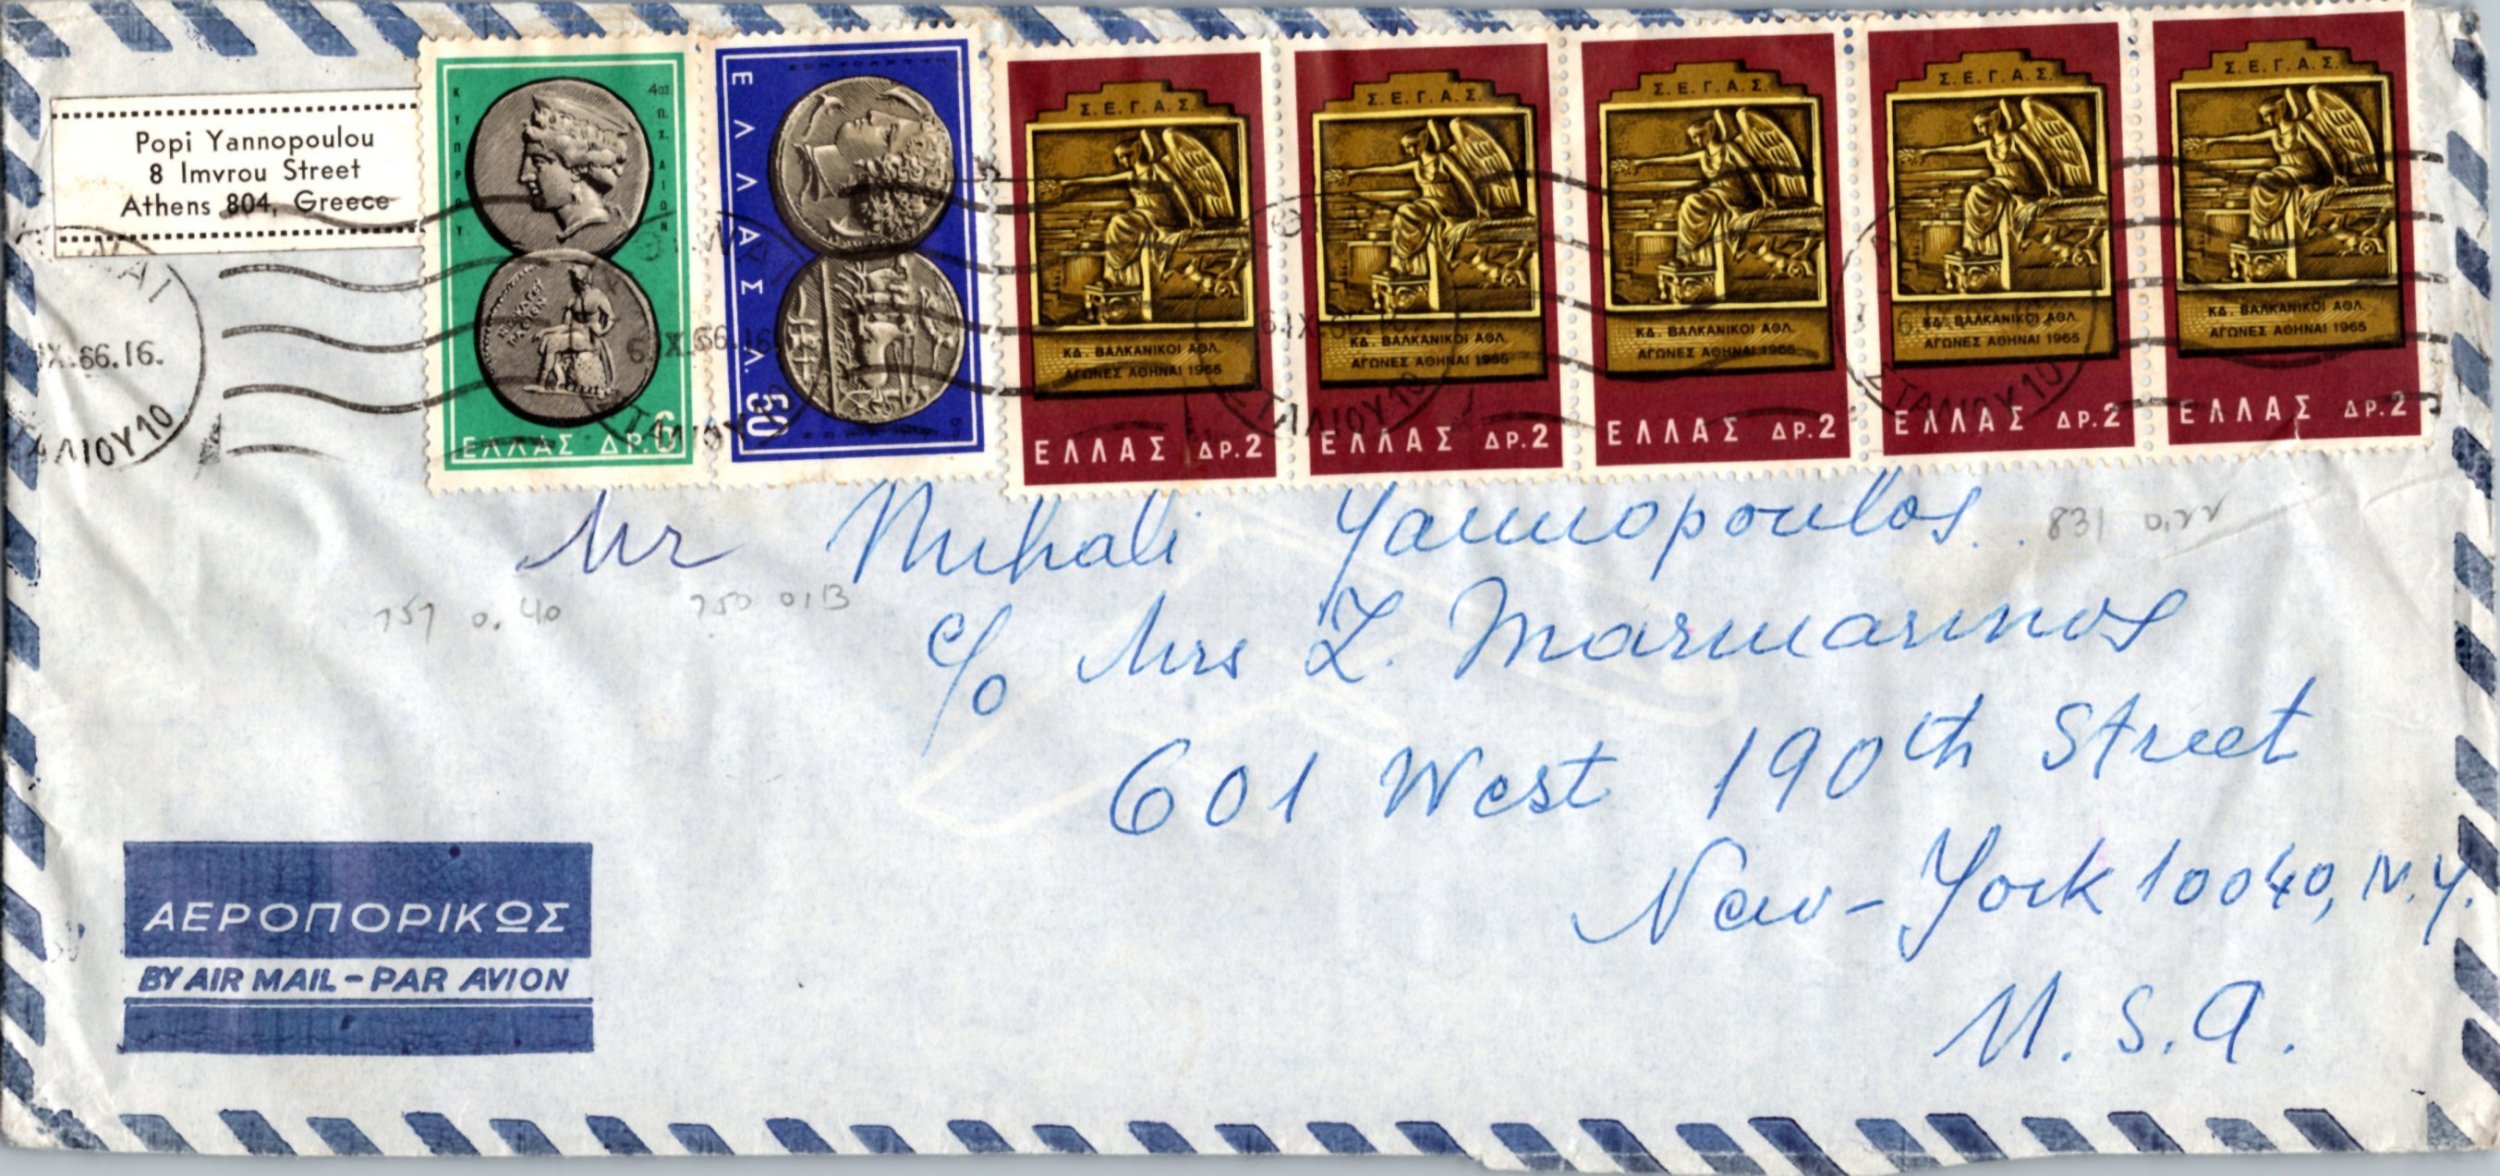 Popi Yannopoulou
8 Imvrou Street
Athens 804, Greece
ΙΧ.66.16.
ΚΥΠΡΟΥ
4ος Π.Χ. ΑΙΩΝ
ΕΛΛΑΣ ΔΡ.6
ΕΛΛΑΣ Λ. 50
Σ.Ε.Γ.Α.Σ.
ΚΔ. ΒΑΛΚΑΝΙΚΟΙ ΑΘΛ.
ΑΓΩΝΕΣ ΑΘΗΝΑΙ 1965
ΕΛΛΑΣ ΔΡ.2
Σ.Ε.Γ.Α.Σ.
ΚΔ. ΒΑΛΚΑΝΙΚΟΙ ΑΘΛ.
ΑΓΩΝΕΣ ΑΘΗΝΑΙ 1965
ΕΛΛΑΣ ΔΡ.2
Σ.Ε.Γ.Α.Σ.
ΚΔ. ΒΑΛΚΑΝΙΚΟΙ ΑΘΛ.
ΑΓΩΝΕΣ ΑΘΗΝΑΙ 1965
ΕΛΛΑΣ ΔΡ.2
Σ.Ε.Γ.Α.Σ.
ΚΔ. ΒΑΛΚΑΝΙΚΟΙ ΑΘΛ.
ΑΓΩΝΕΣ ΑΘΗΝΑΙ 1965
ΕΛΛΑΣ ΔΡ.2
Σ.Ε.Γ.Α.Σ.
ΚΔ. ΒΑΛΚΑΝΙΚΟΙ ΑΘΛ.
ΑΓΩΝΕΣ ΑΘΗΝΑΙ 1965
ΕΛΛΑΣ ΔΡ.2
Mr Mihali Yannopoulos
831 0,22
757 0.40
750 0,13
c/o Mrs Z. Marmarinos
601 West 190th Street
New-York 10040, N.Y.
U.S.A.
ΑΕΡΟΠΟΡΙΚΩΣ
BY AIR MAIL - PAR AVION